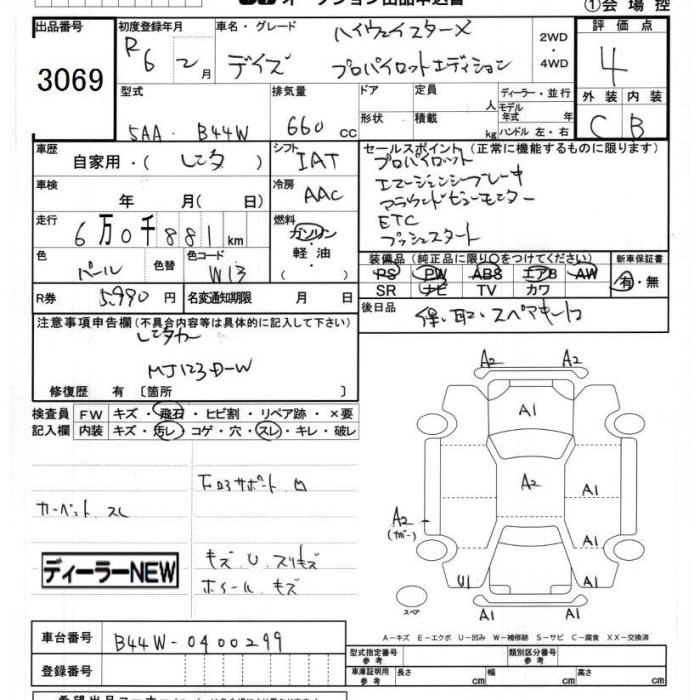 オークション出品申込書
①会場控
出品番号
3069
初度登録年月
R6 2月
車名・グレード
ハイウェイスターX
デイズ プロパイロットエディション
2WD
・
4WD
評価点
4
外装 内装
C B
型式
5AA - B44W
排気量
660 cc
ドア
定員
人
形状
積載
kg
ディーラー・並行
モデル
年式 年
ハンドル 左・右
車歴
自家用・( レンタ )
シフト
IAT
車検
年 月( 日)
冷房
AAC
走行
6万0千881km
燃料
ガソリン
・
軽油
( )
色
パール
色替
色コード
W13
R券
5,990円
名変通知期限 月 日
セールスポイント (正常に機能するものに限ります)
プロパイロット
エマージェンシーブレーキ
アラウンドビューモニター
ETC
プッシュスタート
装備品 (純正品に限り○をつけてください)
PS PW ABS エアB AW
SR ナビ TV カワ
新車保証書
有・無
後日品
保、取、スペアキー
注意事項申告欄 (不具合内容等は具体的に記入して下さい)
レンタカー
MJ123D-W
修復歴 有 〔箇所 〕
検査員
記入欄
FW キズ・飛石・ヒビ割・リペア跡・×要
内装 キズ・汚レ・コゲ・穴・スレ・キレ・破レ
カーペット スレ
下回りサポート 凹
ディーラーNEW
キズ U スリキズ
ホイール キズ
A2 A2
A1
A2
A1
A2
(カバー)
A1
U1
A1
A1 A1
スペア
A-キズ E-エクボ U-凹み W-補修跡 S-サビ C-腐食 XX-交換済
車台番号
B44W-0400299
登録番号
型式指定番号
参考
類別区分番号
参考
車庫証明用
参考
長さ cm 幅 cm 高さ cm